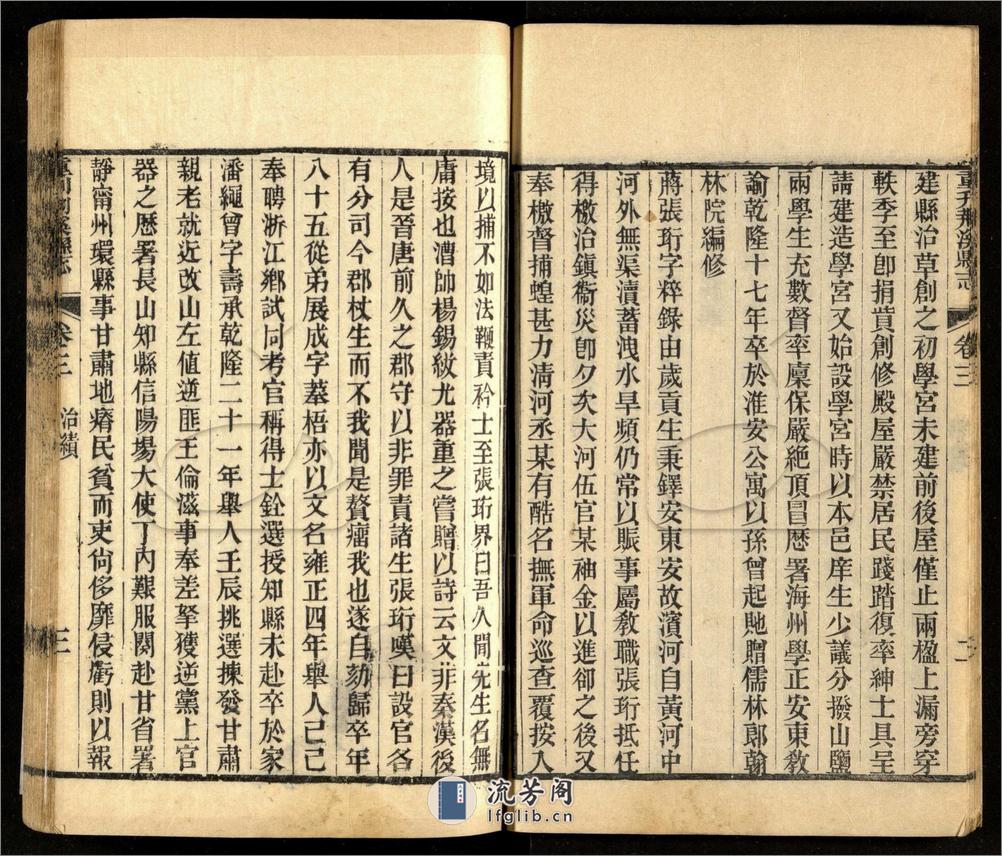 重刋荆溪縣志 卷三 二
建縣治草創之初學宮未建前後屋僅止兩楹上漏旁穿
軼季至卽捐貲創修殿屋嚴禁居民踐踏復率紳士具呈
請建造學宮又始設學宮時以本邑庠生少議分撥山鹽
兩學生充數督率廩保嚴絶頂冒歷署海州學正安東敎
諭乾隆十七年卒於淮安公寓以孫曾起貤贈儒林郎翰
林院編修
蔣張珩字粹錄由歲貢生秉鐸安東安故濱河自黃河中
河外無渠瀆蓄洩水旱頻仍常以賑事屬敎職張珩抵任
得檄治鎮衞災卽夕火大河伍官某袖金以進卻之後又
奉檄督捕蝗甚力淸河丞某有酷名撫軍命巡查覆按入
境以捕不如法鞭責衿士至張珩界曰吾久聞先生名無
庸按也漕帥楊錫紱尤器重之嘗贈以詩云文非秦漢後
人是晉唐前久之郡守以非罪責諸生張珩嘆曰設官各
有分司今郡杖生而不我聞是贅瘤我也遂自劾歸卒年
八十五從弟展成字蓁梧亦以文名雍正四年舉人己己
奉聘浙江鄉試同考官稱得士銓選授知縣未赴卒於家
潘繩曾字壽承乾隆二十一年舉人壬辰挑選揀發甘肅
親老就近改山左値逆匪王倫滋事奉差拏獲逆黨上官
器之歷署長山知縣信陽場大使丁內艱服闋赴甘省署
靜甯州環縣事甘肅地瘠民貧而吏尙侈靡侵虧則以報
卷三 治績 三
流芳阁
lfglib.cn